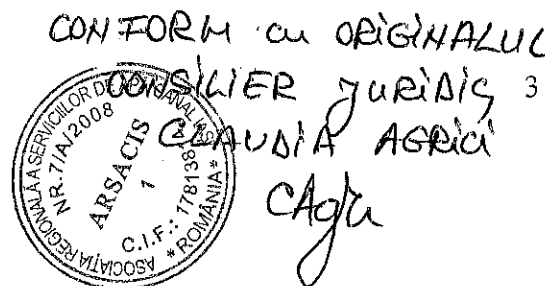 CONFORM cu ORIGINALUL
CONSILIER JURIDIC 3
CLAUDIA AGRICI
ASOCIAȚIA REGIONALĂ A SERVICIILOR DE
NR. 71/A/2008
ARSACIS
1
C.I.F.:
*ROMÂNIA*